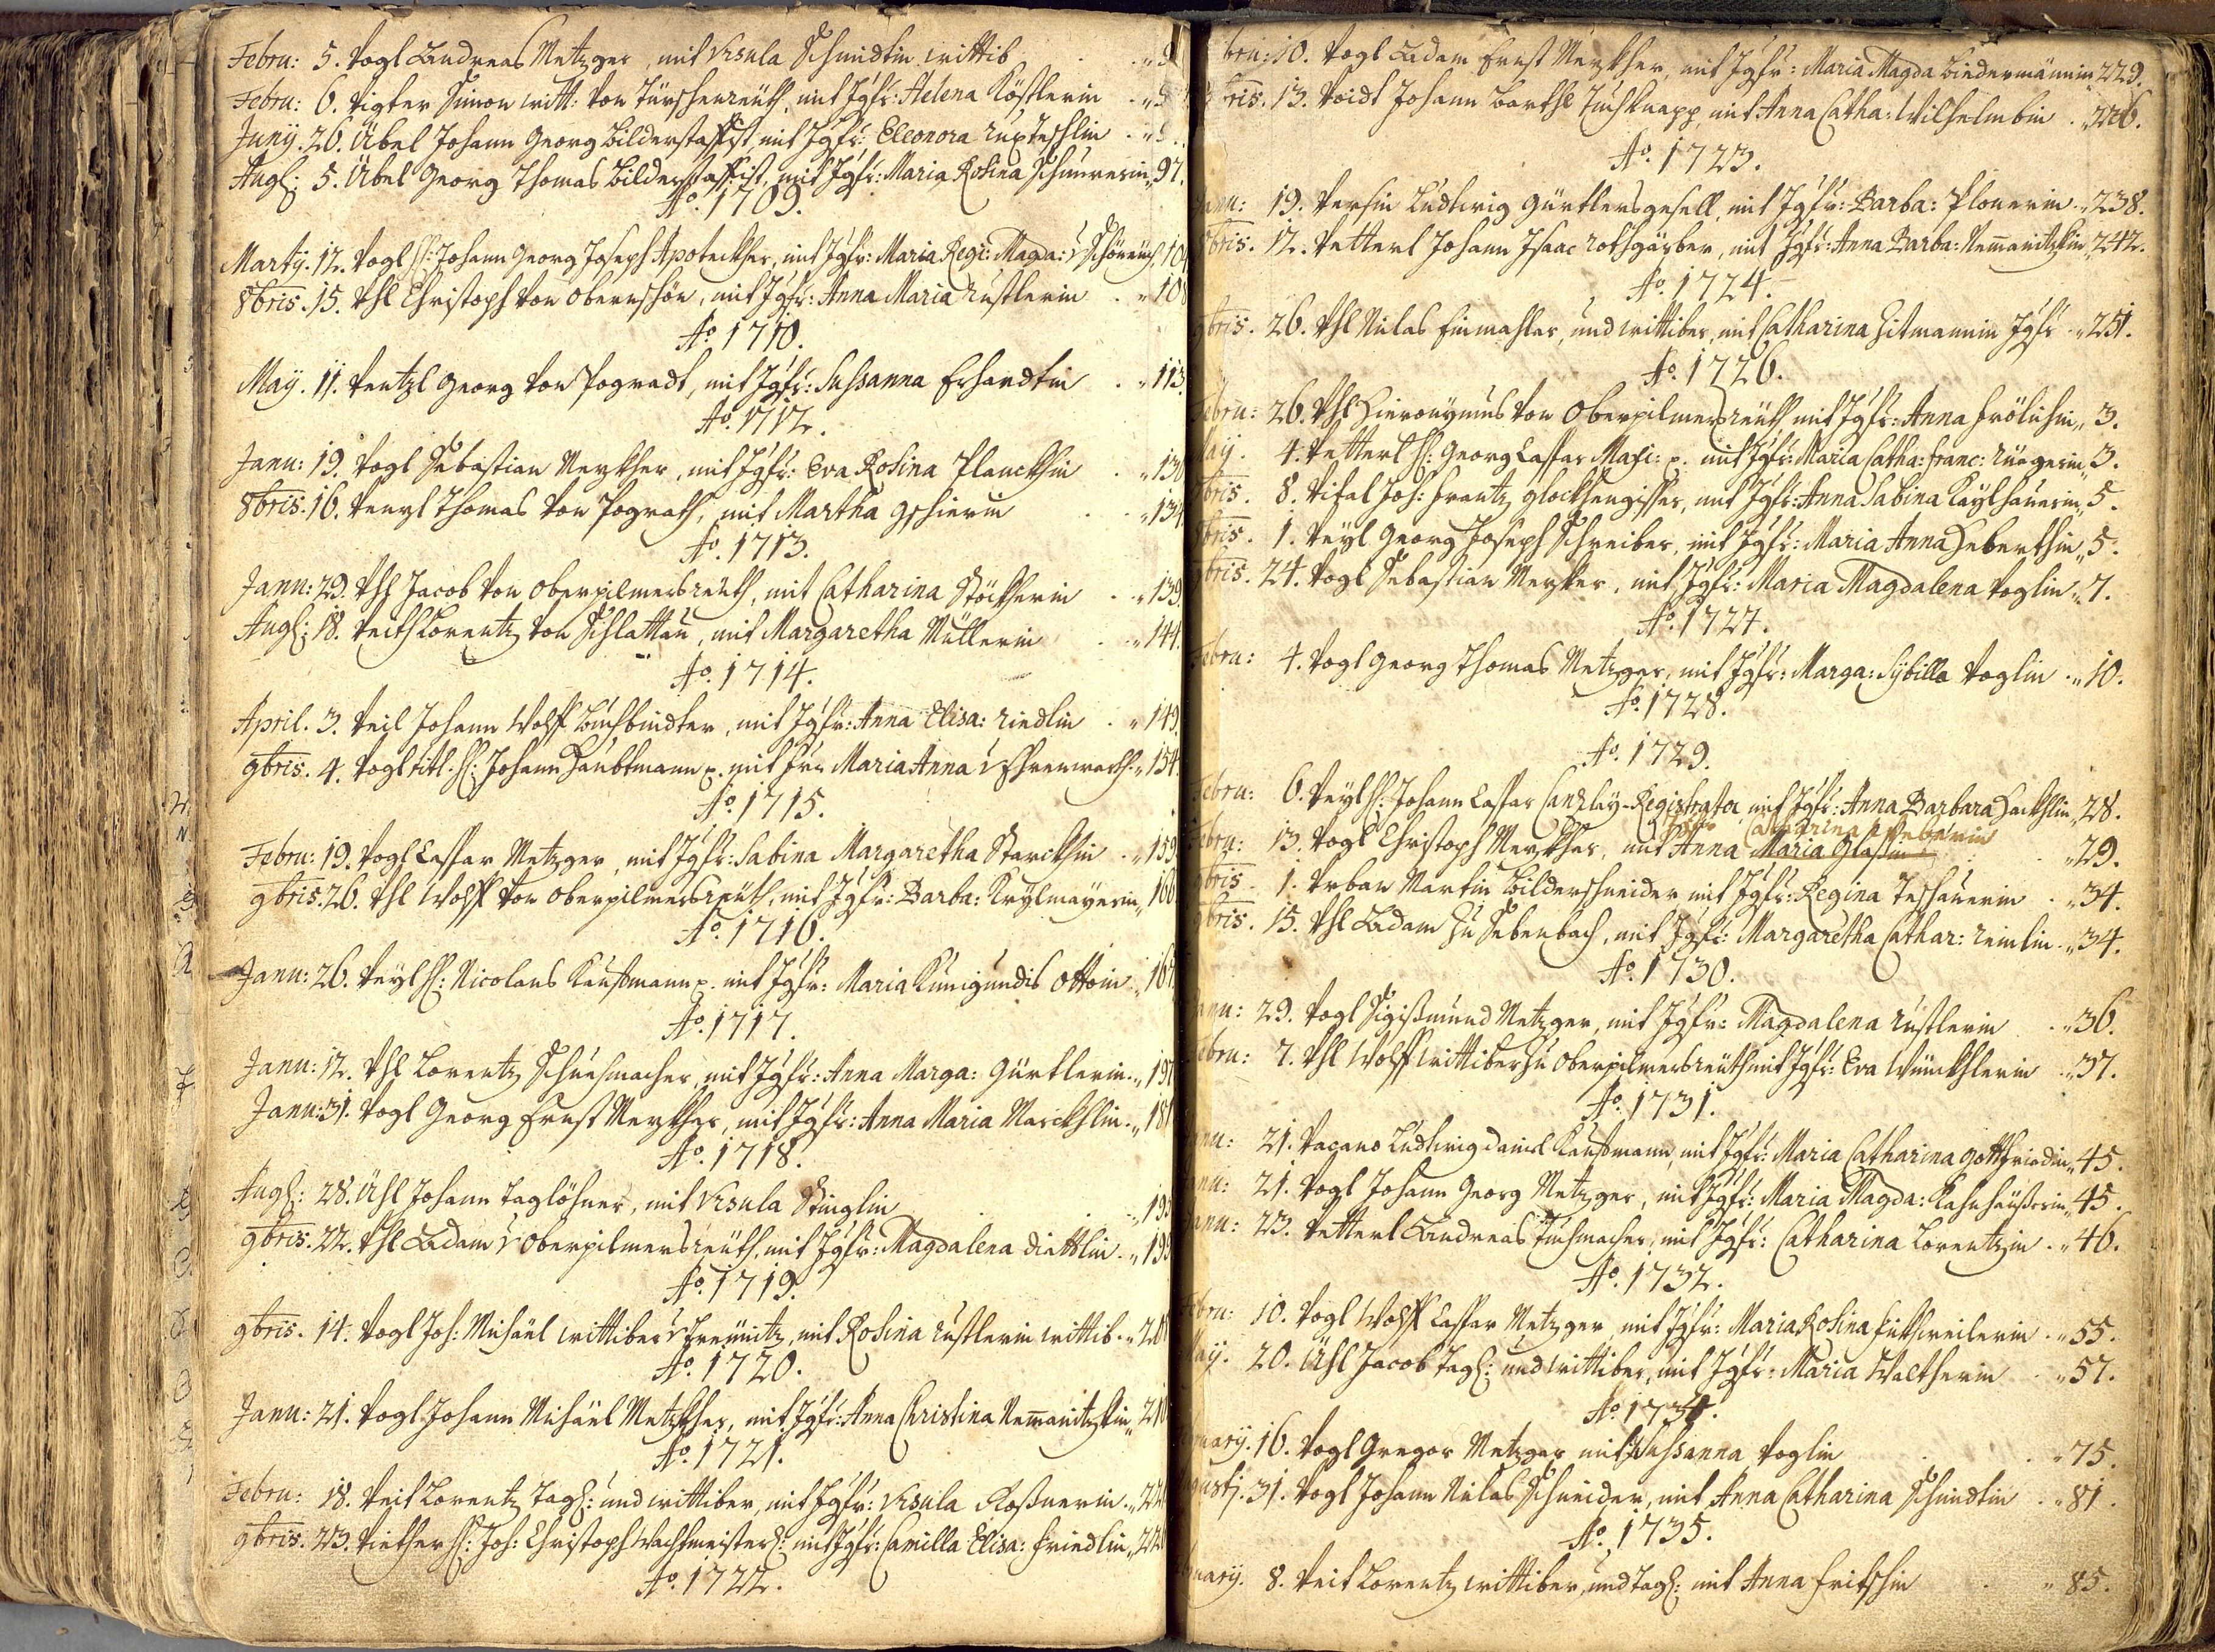 Febru: 5. Vogl Andreas Metzger, mit Vrsula Schmidtin wittib
Febru: 6. Vigter Simon witt: von Türschenreüth, mit Jgfr: Helena Köstlerin
Junÿ. 26. Übel Johann Georg Bilderstaffist, mit Jgfr: Eleonora
Aug: 5. Übel Georg Thomas Bilderstaffist, mit Jgfr: Maria Rosina Schmirerin „ 97.
Ao. 1709.
Martÿ. 12. Vogl H: Johann Georg Joseph Apoteckher, mit Jgfr: Maria Regi: Magda: v Schönaich 10
8bris. 15. Vhl Christoph von Obernschön, mit Jgfr: Anna Maria Rustlerin . „ 108
Ao. 1710.
Maÿ. 11. Ventzl Georg von Pogradt, mit Jgfr: Sussanna Erhardtin . „ 113.
Ao. 1712.
Janu: 19. Vogl Sebastian Mezkher, mit Jgfr: Eva Rosina Planckhin „ 130
8bris. 16. Venzl Thomas von Pograth, mit Martha Gshierin „ 134
Ao. 1713.
Janu: 29. Vhl Jacob von Oberpilmersreüth, mit Catharina Stöckherin . „ 139.
Aug: 18. Veith Lorentz von Schlattau, mit Margaretha Müllerin „ 144.
Ao. 1714.
April. 3. Veil Johann Wolff Buchbindter, mit Jgfr: Anna Elisa: Riedlin . „ 149.
9bris. 4. Vogl titl. H: Johann Haubtmann p. mit Frn Maria Anna v Ehrenwerth „ 154.
Ao. 1715.
Febru: 19. Vogl Casspar Metzger, mit Jgfr: Sabina Margaretha Starckhin . „ 159.
9bris. 26. Vhl Wolff von Oberpilmersreüth, mit Jgfr: Barba: Krÿlmaÿerin „ 166.
Ao. 1716.
Janu: 26. Veÿl H: Nicolaus Kauffmann p. mit Jgfr: Maria Kunigundis Ottoin „ 167.
Ao. 1717.
Janu: 12. Vhl Lorentz Schuehmacher, mit Jgfr: Anna Marga: Gürtlerin . „ 197
Janu: 31. Vogl Georg Ernst Mezkher, mit Jgfr: Anna Maria Marckhlin . „ 181
Ao. 1718.
Aug: 28. Ühl Johann Taglöhner, mit Vrsula Stinglin . „ 193
9bris. 22. Vhl Adam v Oberpilmersreüth, mit Jgfr: Magdalena Diettlin . „ 195
Ao. 1719.
9bris. 14. Vogl Joh: Michäel wittiber v Treünitz, mit Rosina Rustlerin wittib . „ 20
Ao. 1720.
Janu: 21. Vogl Johann Michäel Metzkher, mit Jgfr: Anna Christina Nemanitzkin „ 210
Ao. 1721.
Febru: 18. Veit Lorentz Tagl: und wittiber, mit Jgfr: Vrsula Rossnerin . „ 22
9bris. 23. Viether H: Joh: Christoph Wachtmeister: mit Jgfr: Camilla Elisa: Friedlin „ 22
Ao. 1722.
bru: 10. Vogl Adam Ernst Mezkher, mit Jgfr: Maria Magda Biedermännin 229.
bris. 13. Voidt Johann Barthl Tuchknapp, mit Anna Catha: Wilhelmbin . „ 226.
Ao. 1723.
Janu: 19. Versin Ludwig Gürtlersgesell, mit Jgfr: Barba: Plonerin . „ 238.
8bris. 12. Vetterl Johann Isaac Rothgärber, mit Jgfr: Anna Barba: Nemanitzkin „ 242.
Ao. 1724.
9bris. 26. Vhl Niclas Einmahler, und wittiber, mit Catharina Hitmannin Jgfr . „ 251.
Ao. 1726.
Febru: 26. Vhl Hieronÿmus von Oberpilmersreüth mit Jgfr: Anna Frölichin „ 3.
Maÿ. 4. Vetterl H: Georg Casspar p. mit Jgfr: Maria Catha: Franc: Rüegerin „ 3.
bris. 8. Vital Joh: Frantz Glockhengisser, mit Jgfr: Anna Sabina Kaÿlhauerin „ 5.
8bris. 1. Veÿl Georg Joseph Schreiber, mit Jgfr: Maria Anna Heberthin „ 5.
9bris. 24. Vogl Sebastian Mezker, mit Jgfr: Maria Magdalena Voglin „ 7.
Ao. 1727.
Febru: 4. Vogl Georg Thomas Metzger, mit Jgfr: Marga: Sÿbilla Voglin . „ 10.
Ao. 1728.
Ao. 1729.
Febru: 6. Veÿl H: Johann Casspar Canzlaÿ-Registrator, mit Jgfr: Anna Barbara Hackhlin „ 28.
Catharina Weberin
Febru: 13. Vogl Christoph Mezkher, mit Anna Maria Glassin „ 29.
bris. 1. Vrban Martin Bilderschneider mit Jgfr: Regina Teshauerin . „ 34.
9bris. 15. Vhl Adam zu Sebenbach, mit Jgfr: Margaretha Cathar: Reimlin . „ 34.
Ao. 1730.
Janu: 29. Vogl Sigissmund Metzger, mit Jgfr: Magdalena Rustlerin . „ 36.
Febru: 7. Vhl Wolff wittiber zu Oberpilmersreüth mit Jgfr: Eva Wünckhlerin . „ 37.
Ao. 1731.
Janu: 21. Vacano Ludwig Daniel Kauffmann, mit Jgfr: Maria Catharina Gottfriedin „ 45.
Janu: 21. Vogl Johann Georg Metzger, mit Jgfr: Maria Magda: Kahnhäusserin „ 45.
Janu: 23. Vetterl Andreas Tuchmacher, mit Jgfr: Catharina Lorentzin . „ 46.
Ao. 1732.
Febru: 10. Vogl Wolff Casspar Metzger, mit Jgfr: Maria Rosina . „ 55.
Maÿ. 20. Ühl Jacob Tagl: und wittiber, mit Jgfr: Maria Waltherin . „ 57.
Ao. 1734.
ruarÿ. 16. Vogl Gregor Metzger mit Sussanna Voglin . „ 75.
gustj. 31. Vogl Johann Niclas Schneider, mit Anna Catharina Schmidtin . „ 81.
Ao. 1735.
ruarÿ. 8. Veit Lorentz wittiber, und Tagl: mit Anna Fritschin „ 85.